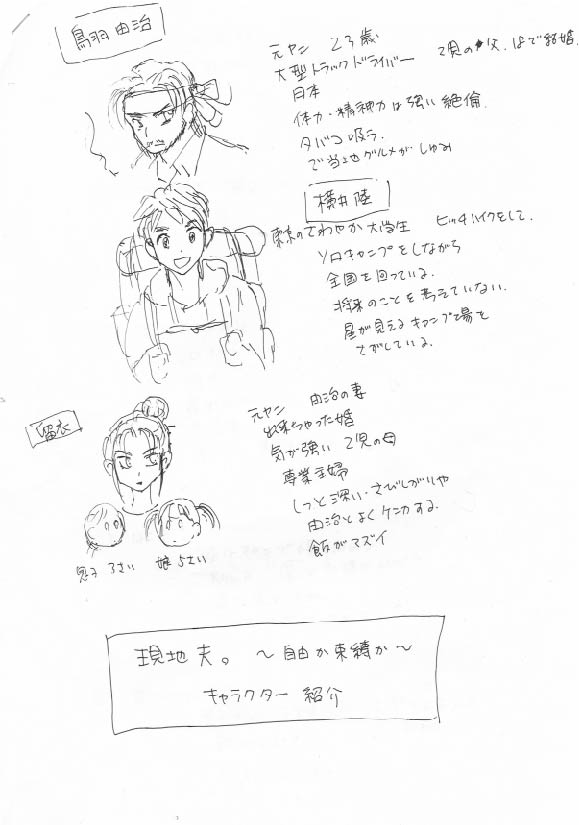 鳥羽 由治
元ヤン 23歳
大型トラックドライバー 2児の父. 
日本
体力・精神力は強い 絶倫
タバコ吸う.
ご当地グルメが しゅみ
横井 陸
東京のさわやか大学生 ヒッチハイクをして.
ソロキャンプをしながら
全国を回っている.
将来のことを考えていない.
星が見えるキャンプ場を
さがしている.
留衣
元ヤン 由治の妻
出来ちゃった婚
気が強い 2児の母
専業主婦
しっと深い・さびしがりや
由治とよくケンカする.
飯がマズイ
息子 3さい 娘 5さい
現地夫。 〜自由か束縛か〜
キャラクター 紹介